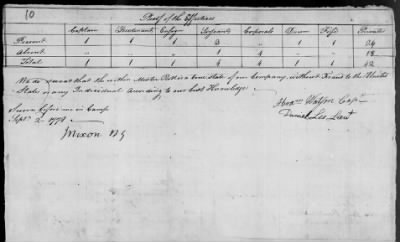 10
Proof of the Effectives
Captain Lieutenant Ensign Serjeants Corporals Drum Fife Privates
Present 1 1 3 " 1 1 24
Absent 1 " " 1 4 " " 18
Total 1 1 1 4 4 1 1 42
We do swear that the within Muster Roll is a true state of our Company, without Fraud to the United
States or any Individual according to our best Knowledge
Sworn before me in Camp
Sept. 2. 1778
Watson Capn
Daniel Lee Lieut
J Nixon B G